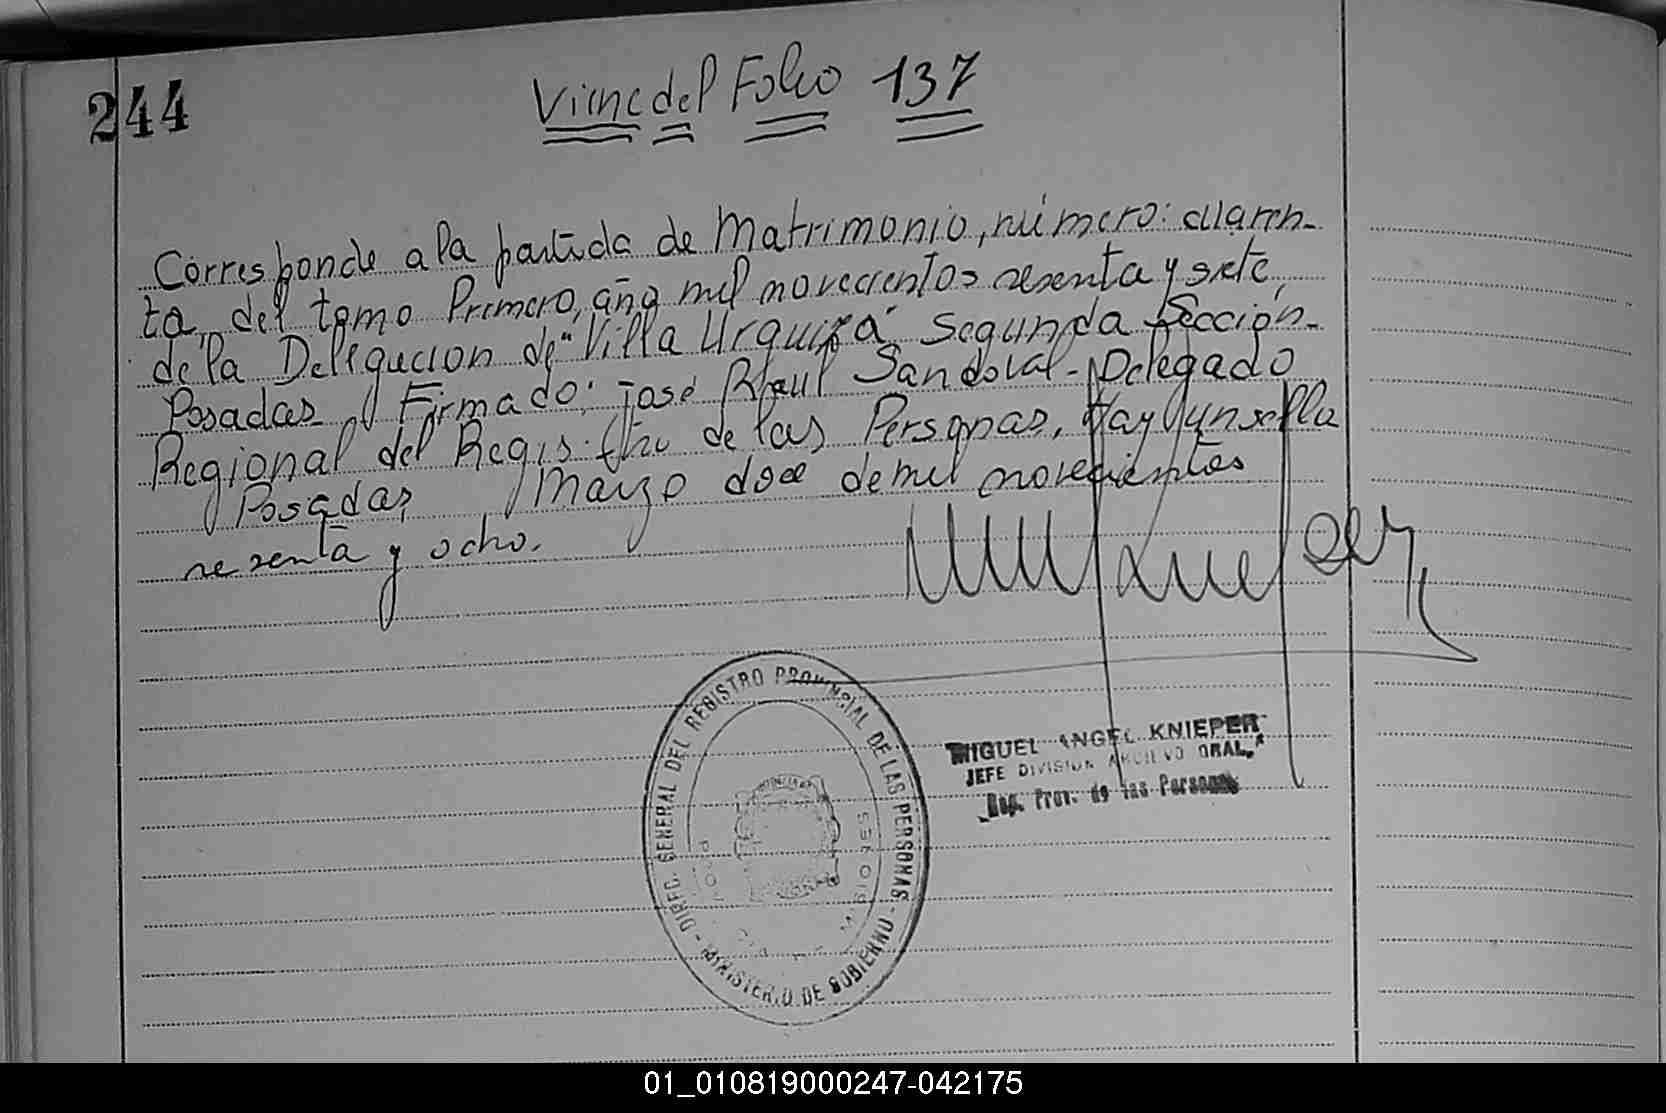 244
Viene del Folio 137
Corresponde a la partida de Matrimonio, número: cuaren-
ta, del tomo Primero, año mil novecientos sesenta y siete,
de la Delegacion de "Villa Urquiza" Segunda Sección-
Posadas Firmado: José Raul Sandoval- Delegado
Regional del Regis.tro de las Personas, Hay un sello
Posadas, Marzo doce de mil novecientos
sesenta y ocho.
DIREC. GENERAL DEL REGISTRO PROVINCIAL DE LAS PERSONAS - MINISTERIO DE GOBIERNO -
MISIONES
MIGUEL ANGEL KNIEPER
JEFE DIVISION ARCHIVO GRAL.
Reg. Prov. de las Personas
01_010819000247-042175